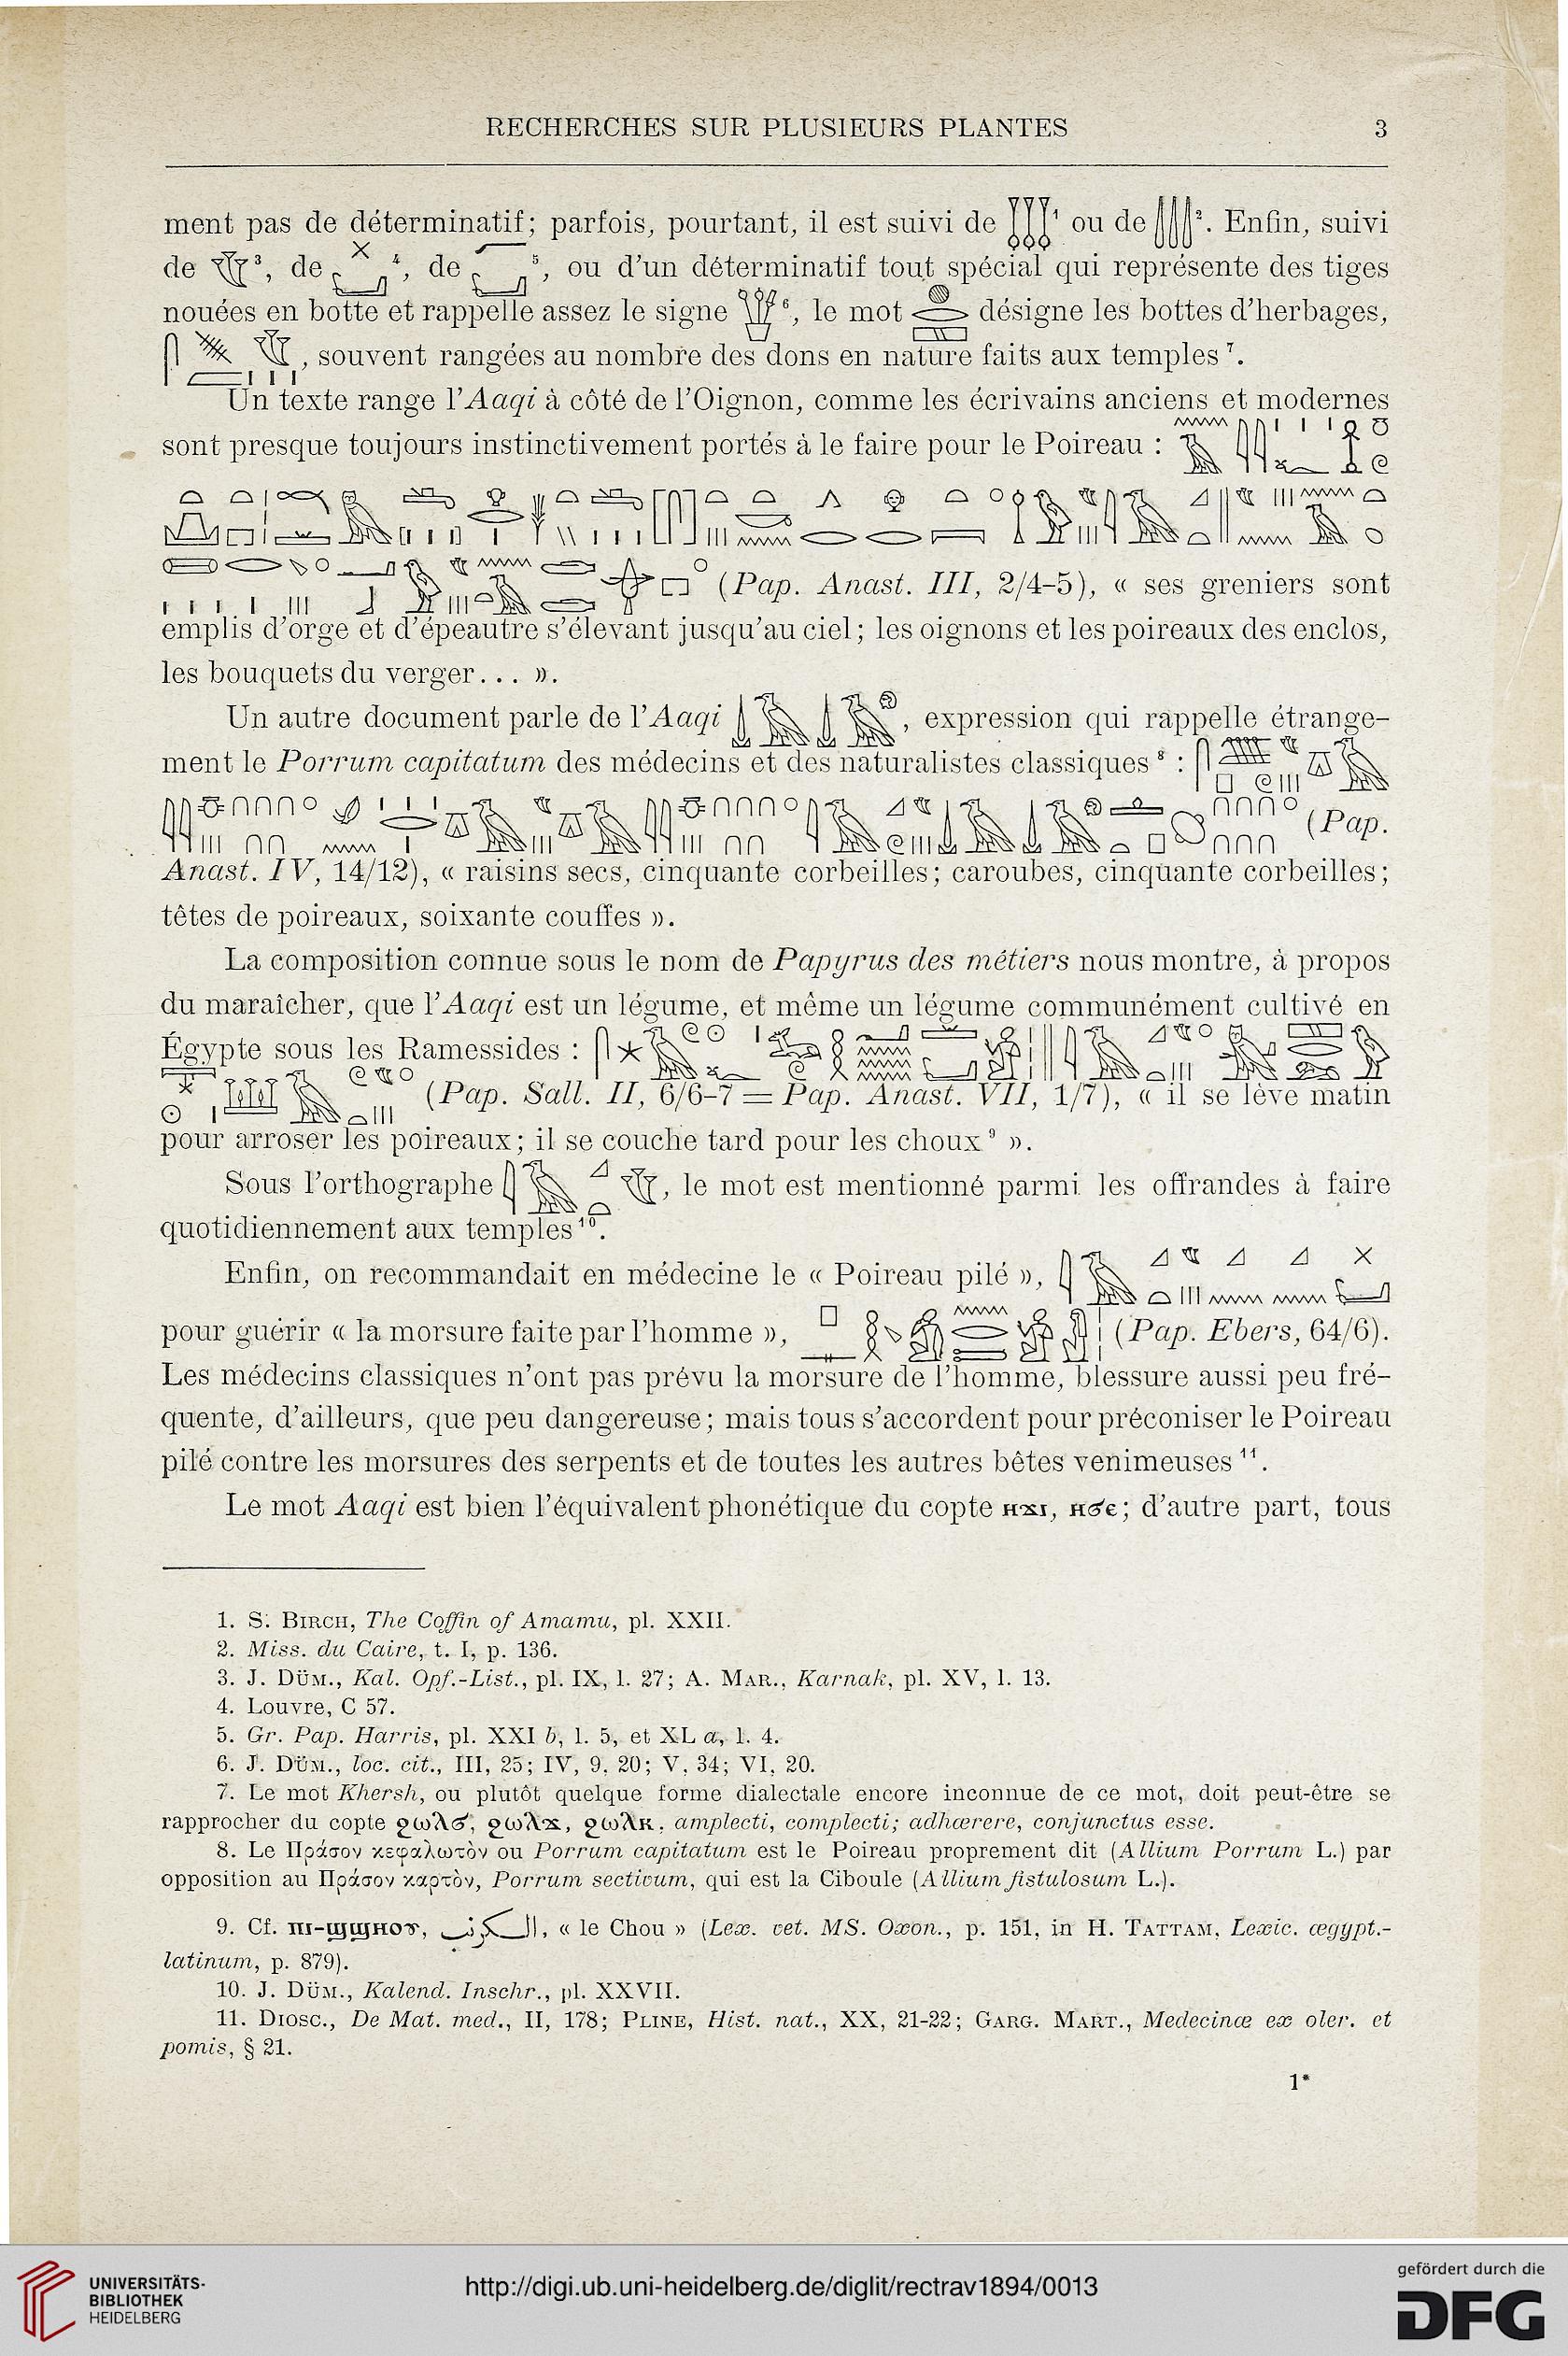 RECHERCHES SUR PLUSIEURS PLANTES 3
ment pas de déterminatif; parfois, pourtant, il est suivi de ¹ ou de ². Enfin, suivi
de ³, de ⁴, de ⁵, ou d'un déterminatif tout spécial qui représente des tiges
nouées en botte et rappelle assez le signe ⁶, le mot désigne les bottes d'herbages,
, souvent rangées au nombre des dons en nature faits aux temples ⁷.
Un texte range l'Aaqi à côté de l'Oignon, comme les écrivains anciens et modernes
sont presque toujours instinctivement portés à le faire pour le Poireau :
(Pap. Anast. III, 2/4-5), « ses greniers sont
emplis d'orge et d'épeautre s'élevant jusqu'au ciel; les oignons et les poireaux des enclos,
les bouquets du verger... ».
Un autre document parle de l'Aaqi , expression qui rappelle étrange-
ment le Porrum capitatum des médecins et des naturalistes classiques ⁸ :
(Pap.
Anast. IV, 14/12), « raisins secs, cinquante corbeilles; caroubes, cinquante corbeilles;
têtes de poireaux, soixante couffes ».
La composition connue sous le nom de Papyrus des métiers nous montre, à propos
du maraîcher, que l'Aaqi est un légume, et même un légume communément cultivé en
Égypte sous les Ramessides :
(Pap. Sall. II, 6/6-7 = Pap. Anast. VII, 1/7), « il se lève matin
pour arroser les poireaux; il se couche tard pour les choux ⁹ ».
Sous l'orthographe , le mot est mentionné parmi les offrandes à faire
quotidiennement aux temples ¹⁰.
Enfin, on recommandait en médecine le « Poireau pilé »,
pour guérir « la morsure faite par l'homme », (Pap. Ebers, 64/6).
Les médecins classiques n'ont pas prévu la morsure de l'homme, blessure aussi peu fré-
quente, d'ailleurs, que peu dangereuse; mais tous s'accordent pour préconiser le Poireau
pilé contre les morsures des serpents et de toutes les autres bêtes venimeuses ¹¹.
Le mot Aaqi est bien l'équivalent phonétique du copte ⲏϫⲓ, ⲏϭⲉ; d'autre part, tous
1. S. BIRCH, The Coffin of Amamu, pl. XXII.
2. Miss. du Caire, t. I, p. 136.
3. J. DÜM., Kal. Opf.-List., pl. IX, l. 27; A. MAR., Karnak, pl. XV, l. 13.
4. Louvre, C 57.
5. Gr. Pap. Harris, pl. XXI b, l. 5, et XL a, l. 4.
6. J. DÜM., loc. cit., III, 25; IV, 9, 20; V, 34; VI, 20.
7. Le mot Khersh, ou plutôt quelque forme dialectale encore inconnue de ce mot, doit peut-être se
rapprocher du copte ϩⲱⲗϭ, ϩⲱⲗϫ, ϩⲱⲗⲕ, amplecti, complecti; adhærere, conjunctus esse.
8. Le Πράσον κεφαλωτὸν ou Porrum capitatum est le Poireau proprement dit (Allium Porrum L.) par
opposition au Πράσον καρτὸν, Porrum sectivum, qui est la Ciboule (Allium fistulosum L.).
9. Cf. ⲡⲓ-ϣϣⲏⲟⲩ, الكرنب, « le Chou » (Lex. vet. MS. Oxon., p. 151, in H. TATTAM, Lexic. ægypt.-
latinum, p. 879).
10. J. DÜM., Kalend. Inschr., pl. XXVII.
11. DIOSC., De Mat. med., II, 178; PLINE, Hist. nat., XX, 21-22; GARG. MART., Medecinæ ex oler. et
pomis, § 21.
1*
UNIVERSITÄTS-
BIBLIOTHEK
HEIDELBERG
http://digi.ub.uni-heidelberg.de/diglit/rectrav1894/0013
gefördert durch die
DFG